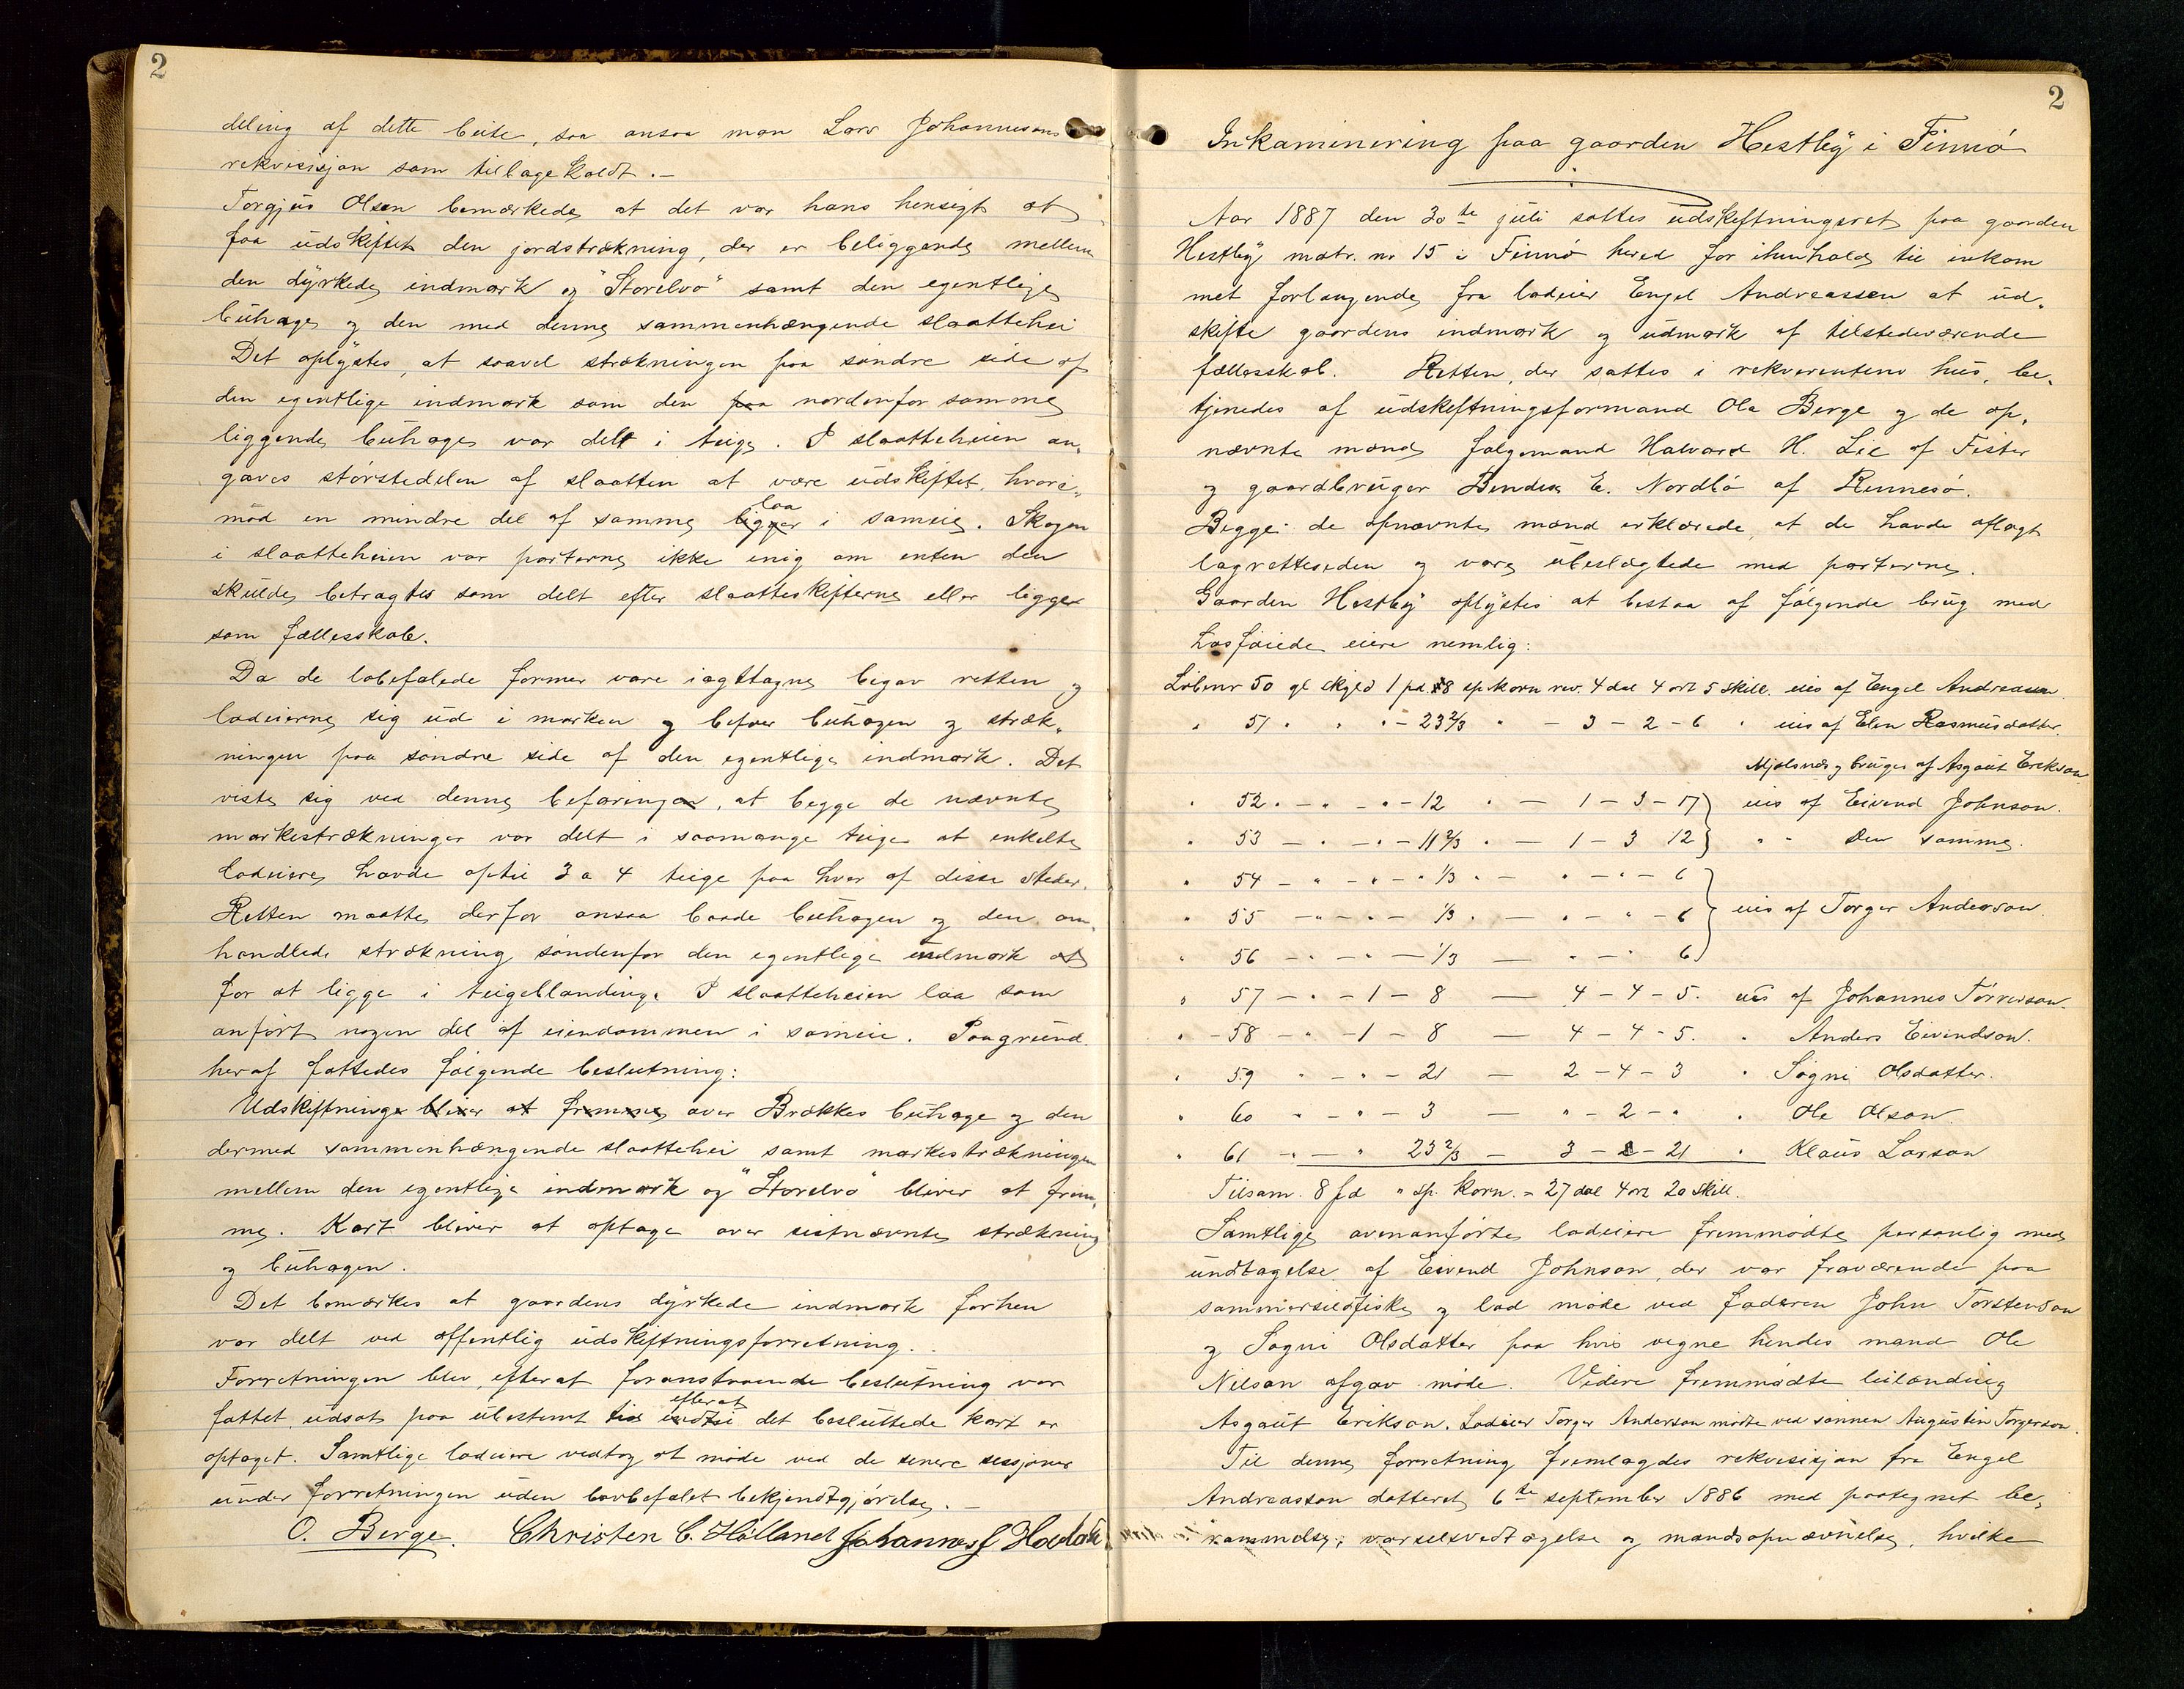 2
deling af dette beite, saa ansaa man Lars Johannesens
rekvisisjon som tilbagekaldt. –
Torgjus Olsen bemærkede at det var hans hensigt at
faa udskiftet den jordstrækning, der er beliggende mellem
den dyrkede indmark og "Storelvo" samt den egentlige
buhage og den med denne sammenhængende slaattehei
Det oplystes, at saavel strækningen paa søndre side af
den egentlige indmark som den paa nordenfor samme
liggende buhage var delt i teige. I slaatteheien an-
gaves størstedelen af slaatten at være udskiftet, hvori-
mod en mindre del af samme ligger laa i sameie. Skogen
i slaatteheien var parterne ikke enig om enten den
skulde betragtes som delt efter slaatteskifterne eller ligger
som fællesskab.
Da de lobefalede former vare iagttagne begav retten og
lodeierne sig ud i marken og befoer buhagen og stræk-
ningen paa søndre side af den egentlige indmark. Det
viste sig ved denne befaringen, at begge de nævnte
markestrækninger var delt i saamange teige at enkelte
lodeiere havde optil 3 a 4 teige paa hver af disse steder.
Retten maatte derfor ansaa baade buhagen og den om-
handlede strækning søndenfor den egentlige indmark at
for at ligge i teigeblanding. I slaatteheien laa som
anført nogen del af eiendommen i sameie. Paagrund
heraf fattedes følgende beslutning:
Udskiftninge bliver at fremme over Brækkes buhage og den
dermed sammenhængende slaattehei samt markestrækningen
mellem den egentlige indmark og "Storelvo" bliver at frem-
me. Kart bliver at optage over sistnævnte strækning
og buhagen.
Det bemærkes at gaardens dyrkede indmark forhen
var delt ved offentlig udskiftningsforretning.
Forretningen blev, efterat foranstaaende beslutning var
fattet, udsat paa ubestemt tid efterat det besluttede kart er
optaget. Samtlige lodeiere vedtog at møde ved de senere sessjoner
under forretningen uden lovbefalet bekjendtgjørelse. –
O. Berge. Christen C. Hølland Johannes J.
2
Inkaminering paa gaarden Hestby i Finnø
Aar 1887 den 30te juli sattes udskiftningsret paa gaarden
Hestby matr. nr 15 i Finnø hered for ihenhold til inkom
met forlangende fra lodeier Engel Andreassen at ud-
skifte gaardens indmark og udmark af tilstedeværende
fællesskab. Retten, der sattes i rekventens hus, be-
tjenedes af udskiftningsformand Ole Berge og de op-
nævnte mænd følgemand Halvard H. Lie af Fister
og gaardbruger Bendix E. Nordbø af Rennesø.
Begge de opnævnte mænd erklærede, at de havde aflagt
lagretteseden og vare ubeslægtede med parterne.
Gaarden Hestby oplystes at bestaa af følgende brug med
hosføiede eiere nemlig:
Løbenr 50 gl skyld 1 pd 8 sp korn rev. 4 dal 4 ort 5 skill. eies af Engel Andreassen.
" 51 " " " – 23 2/3 " – 3 – 2 – 6 " eies af Elen Rasmusdatter.
Mjølsnes, bruges af Asgaut Erikson
" 52 " – " – " – 12 " – 1 – 3 – 17 eies af Eivend Johnson.
" 53 – " – " – 11 2/3 " – 1 – 3 12 " " den samme.
" 54 – " – " – " 1/3 " – " – " – 6
" 55 – " – " – 1/3 " – " – " – 6 eies af Torger Anderson.
" 56 – " – " – 1/3 – " – " 6
" 57 – " – 1 – 8 – 4 – 4 – 5. eies af Johannes Tørresson.
" 58 – " – 1 – 8 – 4 – 4 – 5. " Anders Eivindson.
" 59 " – " – 21 – 2 – 4 – 3 " Sogni Olsdatter.
" 60 " – " – 3 – " – 2 – " " Ole Olson.
" 61 – " – " 23 2/3 – 3 – 2 – 21 " Klaus Larson
Tilsam. 8 pd " sp. korn. – 27 dal 4 ort 20 skill.
Samtlige ovenanførte lodeiere fremmødte personlig med
undtagelse af Eivend Johnson, der var fraværende paa
sommersildfiske og lod møde ved faderen John Torstenson
og Sogni Olsdatter paa hvis vegne hendes mand Ole
Nilson afgav møde. Videre fremmødte leilænding
Asgaut Erikson. Lodeier Torger Anderson mødte ved sønnen Augustin Torgerson.
Til denne forretning fremlagdes rekvisisjon fra Engel
Andreasson datteret 6te september 1886 med paategnet be-
rammelse, varselsvedtagelse og mandsopnævnelse, hvilke